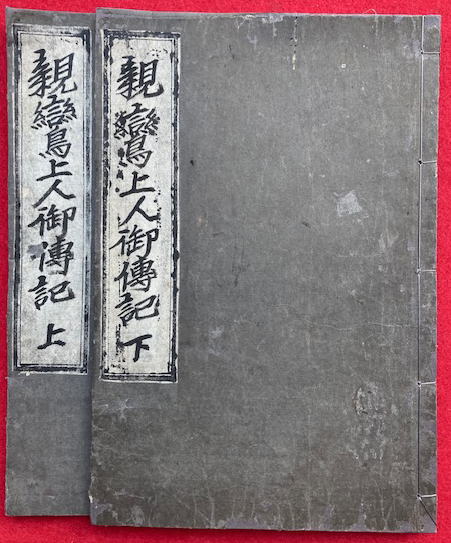 親鸞上人御傳記 上
親鸞上人御傳記 下